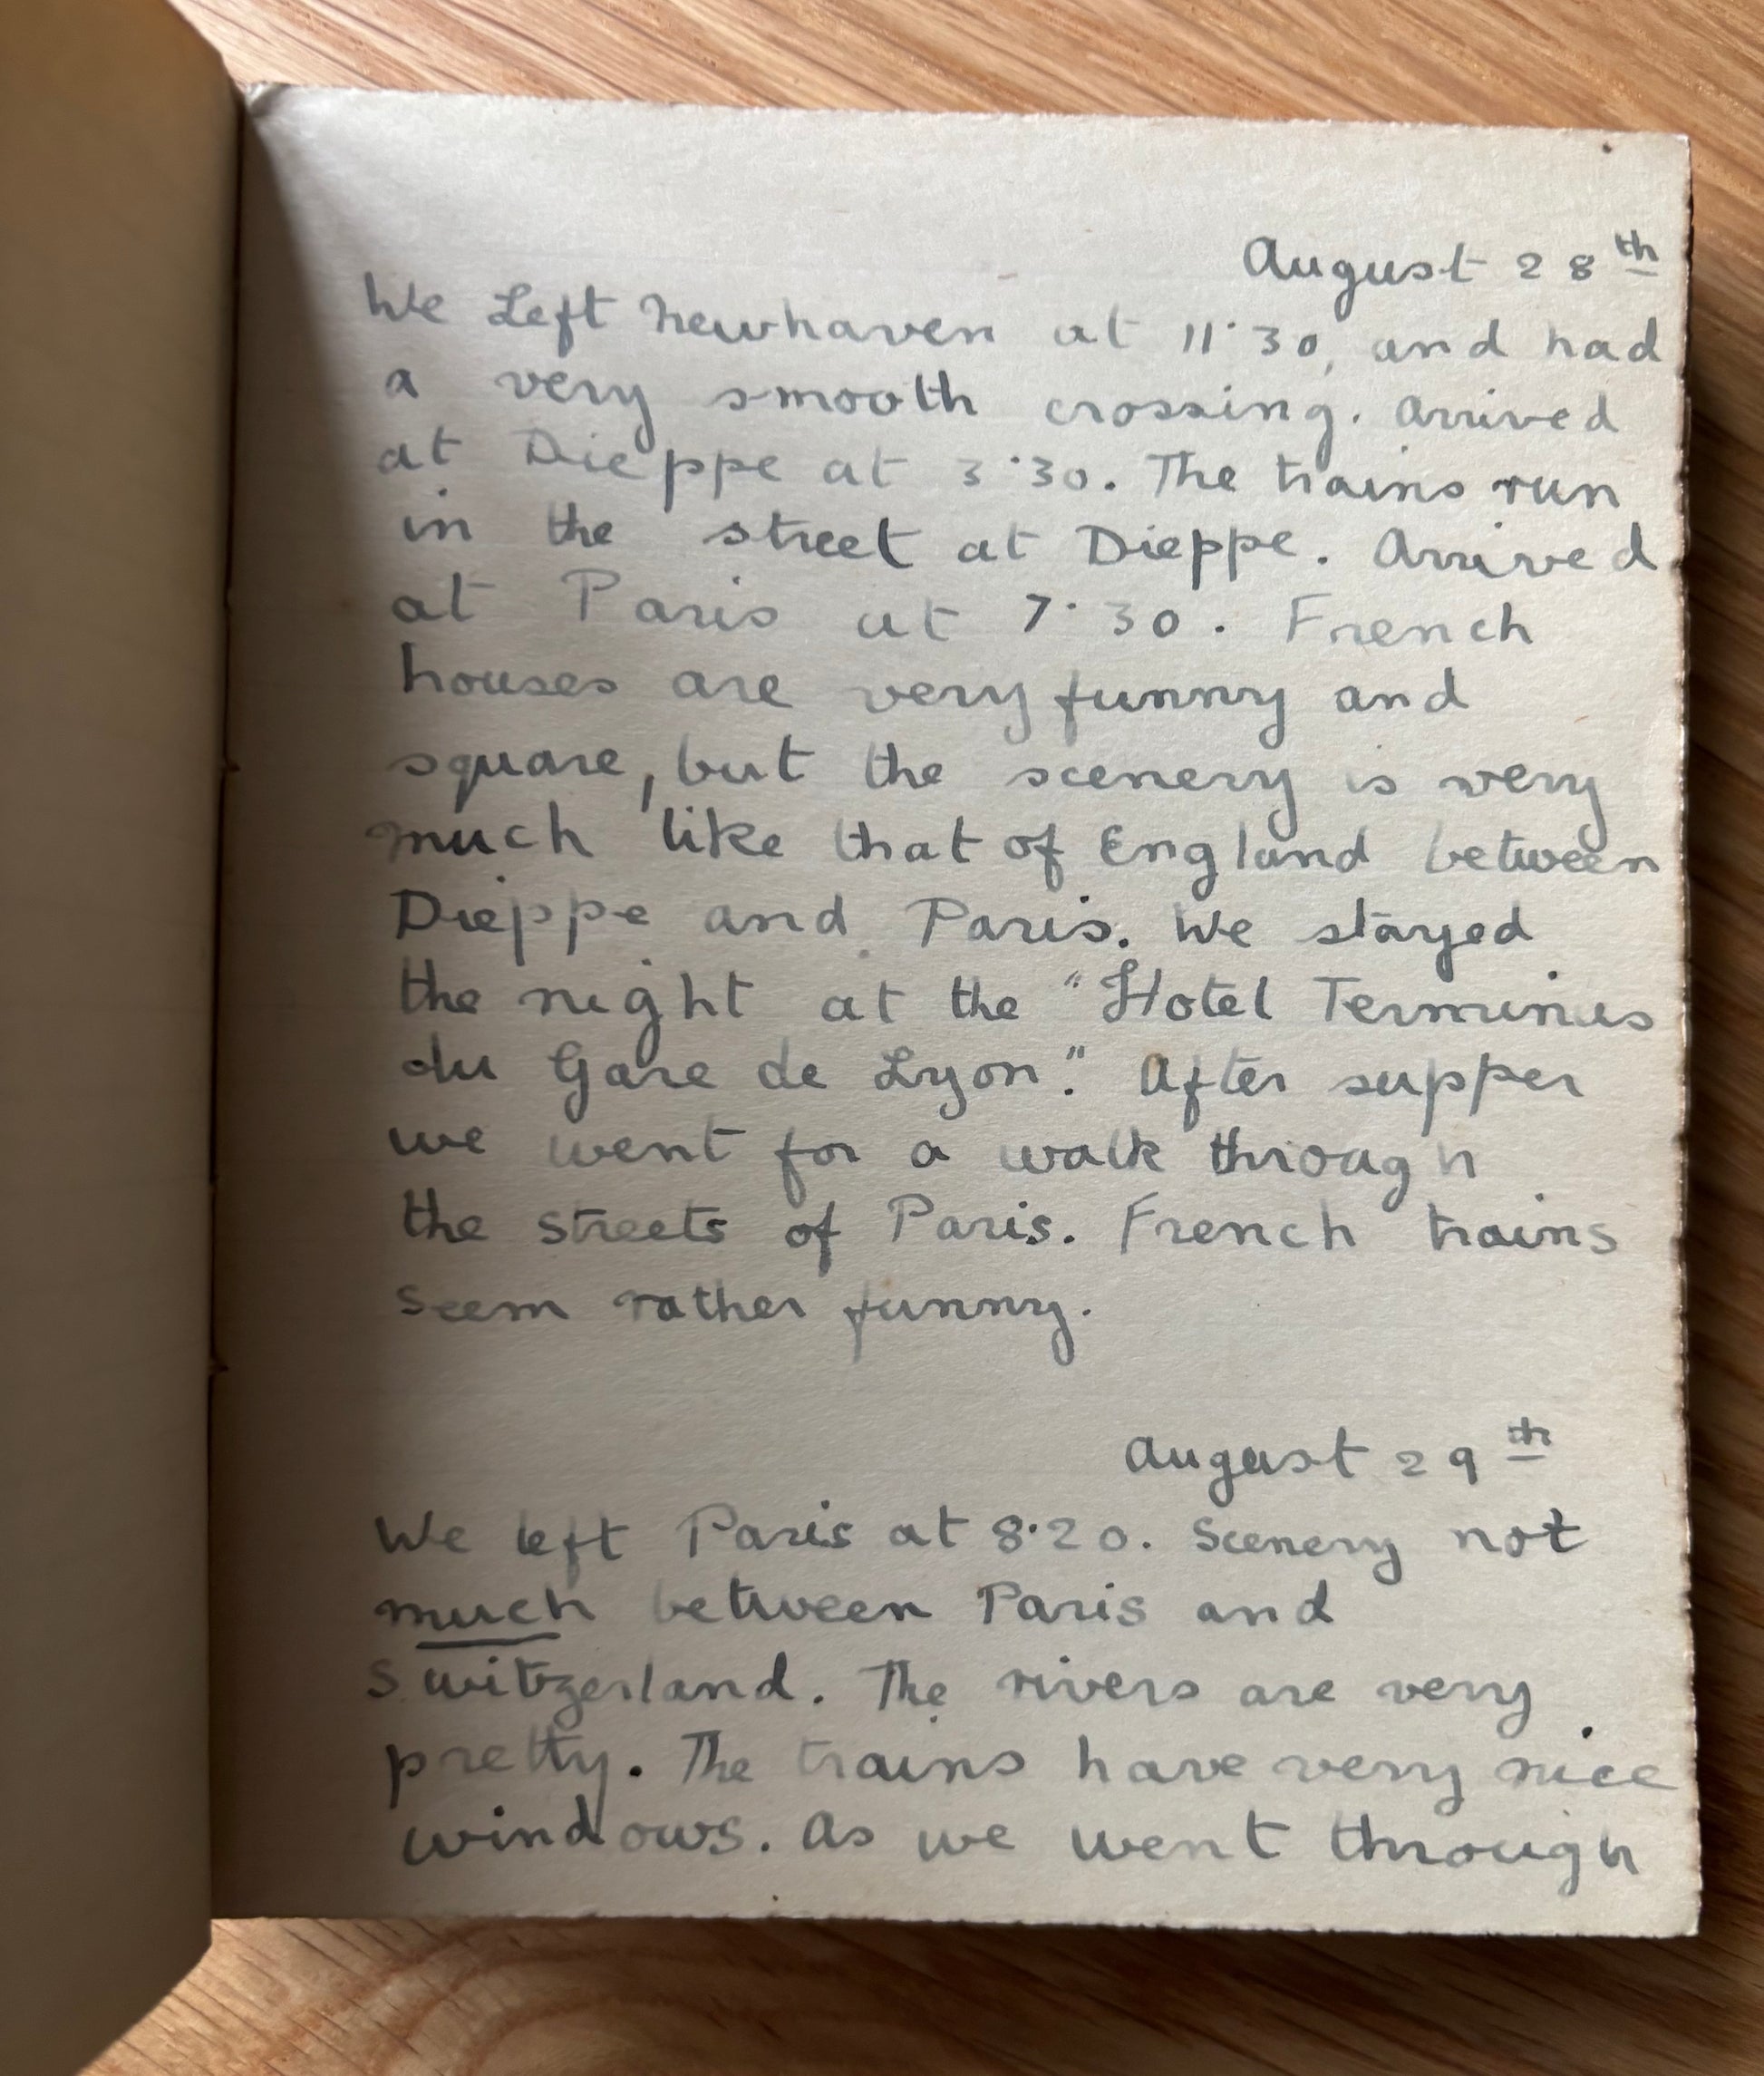 August 28th
We Left Newhaven at 11·30, and had
a very smooth crossing. Arrived
at Dieppe at 3·30. The trains run
in the street at Dieppe. Arrived
at Paris at 7·30. French
houses are very funny and
square, but the scenery is very
much like that of England between
Dieppe and Paris. We stayed
the night at the "Hotel Terminus
du Gare de Lyon". After supper
we went for a walk through
the streets of Paris. French trains
seem rather funny.
August 29th
We left Paris at 8·20. Scenery not
much between Paris and
Switzerland. The rivers are very
pretty. The trains have very nice
windows. As we went through